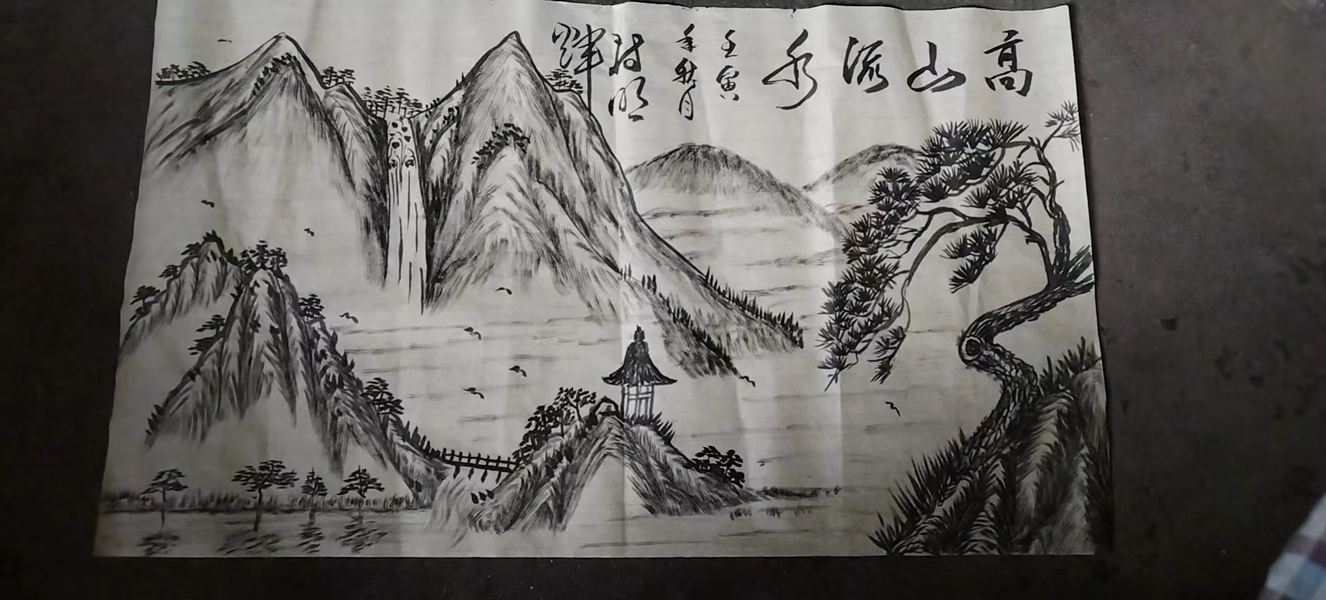 高山流水
壬寅
年秋月
诗明
辉